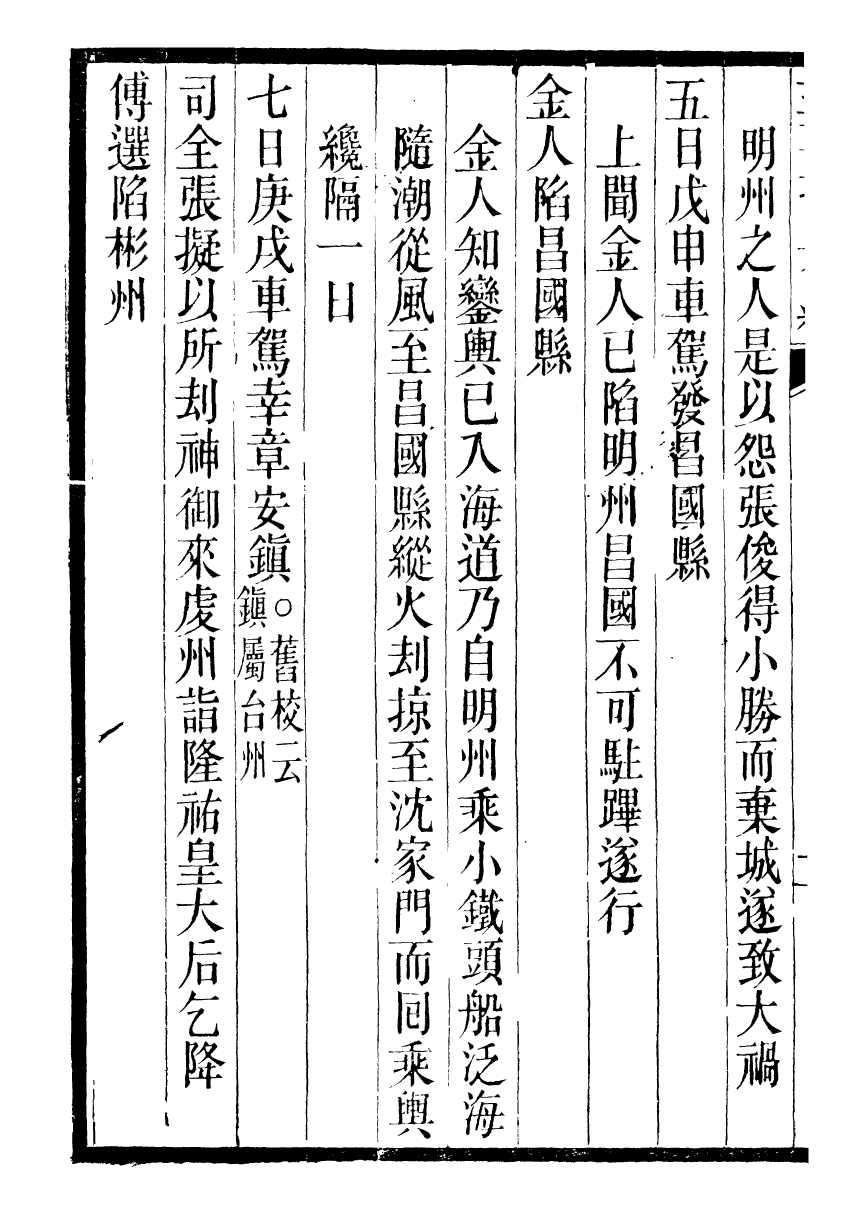 明州之人是以怨張俊得小勝而棄城遂致大禍
五日戊申車駕發昌國縣
上聞金人已陷明州昌國不可駐蹕遂行
金人陷昌國縣
金人知鑾輿已入海道乃自明州乘小鐵頭船泛海
隨潮從風至昌國縣縱火刦掠至沈家門而回乘輿
纔隔一日
七日庚戌車駕幸章安鎮○舊校云鎮屬台州
司全張擬以所刦神御來虔州詣隆祐皇大后乞降
傅選陷彬州